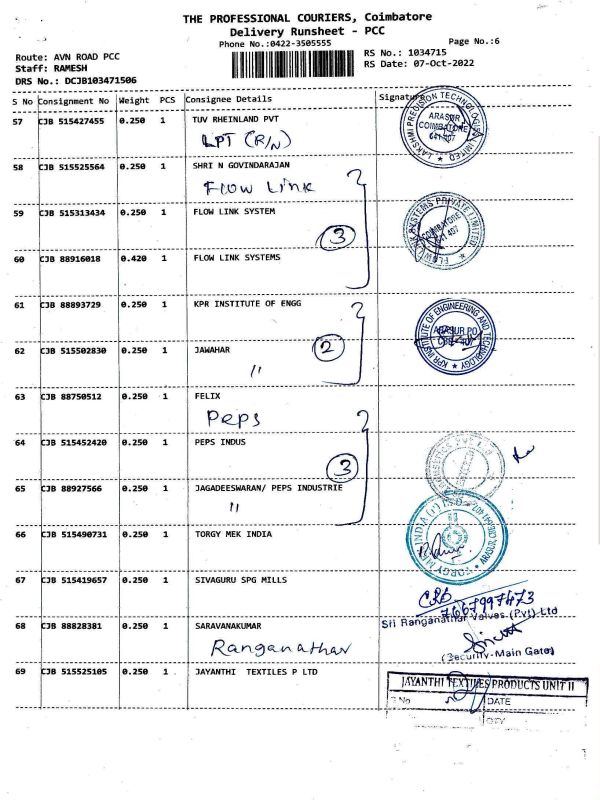 THE PROFESSIONAL COURIERS, Coimbatore
Delivery Runsheet - PCC
Phone No.:0422-3505555
Page No.:6
Route: AVN ROAD PCC
Staff: RAMESH
DRS No.: DCJB103471506
RS No.: 1034715
RS Date: 07-Oct-2022
S No Consignment No Weight PCS Consignee Details Signature
57 CJB 515427455 0.250 1 TUV RHEINLAND PVT
LPT (R/N)
LAKSHMI PRECISION TECHNOLOGIES LIMITED
ARASUR
COIMBATORE
641 407
58 CJB 515525564 0.250 1 SHRI N GOVINDARAJAN
FLOW LINK
59 CJB 515313434 0.250 1 FLOW LINK SYSTEM
3
FLOW LINK SYSTEMS PRIVATE LIMITED
COIMBATORE
641 407
60 CJB 88916018 0.420 1 FLOW LINK SYSTEMS
61 CJB 88893729 0.250 1 KPR INSTITUTE OF ENGG
KPR INSTITUTE OF ENGINEERING AND TECHNOLOGY
ARASUR PO
62 CJB 515502830 0.250 1 JAWAHAR
2
"
63 CJB 88750512 0.250 1 FELIX
Peps
64 CJB 515452420 0.250 1 PEPS INDUS
3
65 CJB 88927566 0.250 1 JAGADEESWARAN/ PEPS INDUSTRIE
"
66 CJB 515490731 0.250 1 TORGY MEK INDIA
67 CJB 515419657 0.250 1 SIVAGURU SPG MILLS
7667997473
68 CJB 88828381 0.250 1 SARAVANAKUMAR
Ranganathar
Sri Ranganathar Valves (Pvt) Ltd
(Security-Main Gate)
69 CJB 515525105 0.250 1 JAYANTHI TEXTILES P LTD
JAYANTHI TEXTILES PRODUCTS UNIT II
S No DATE
QTY